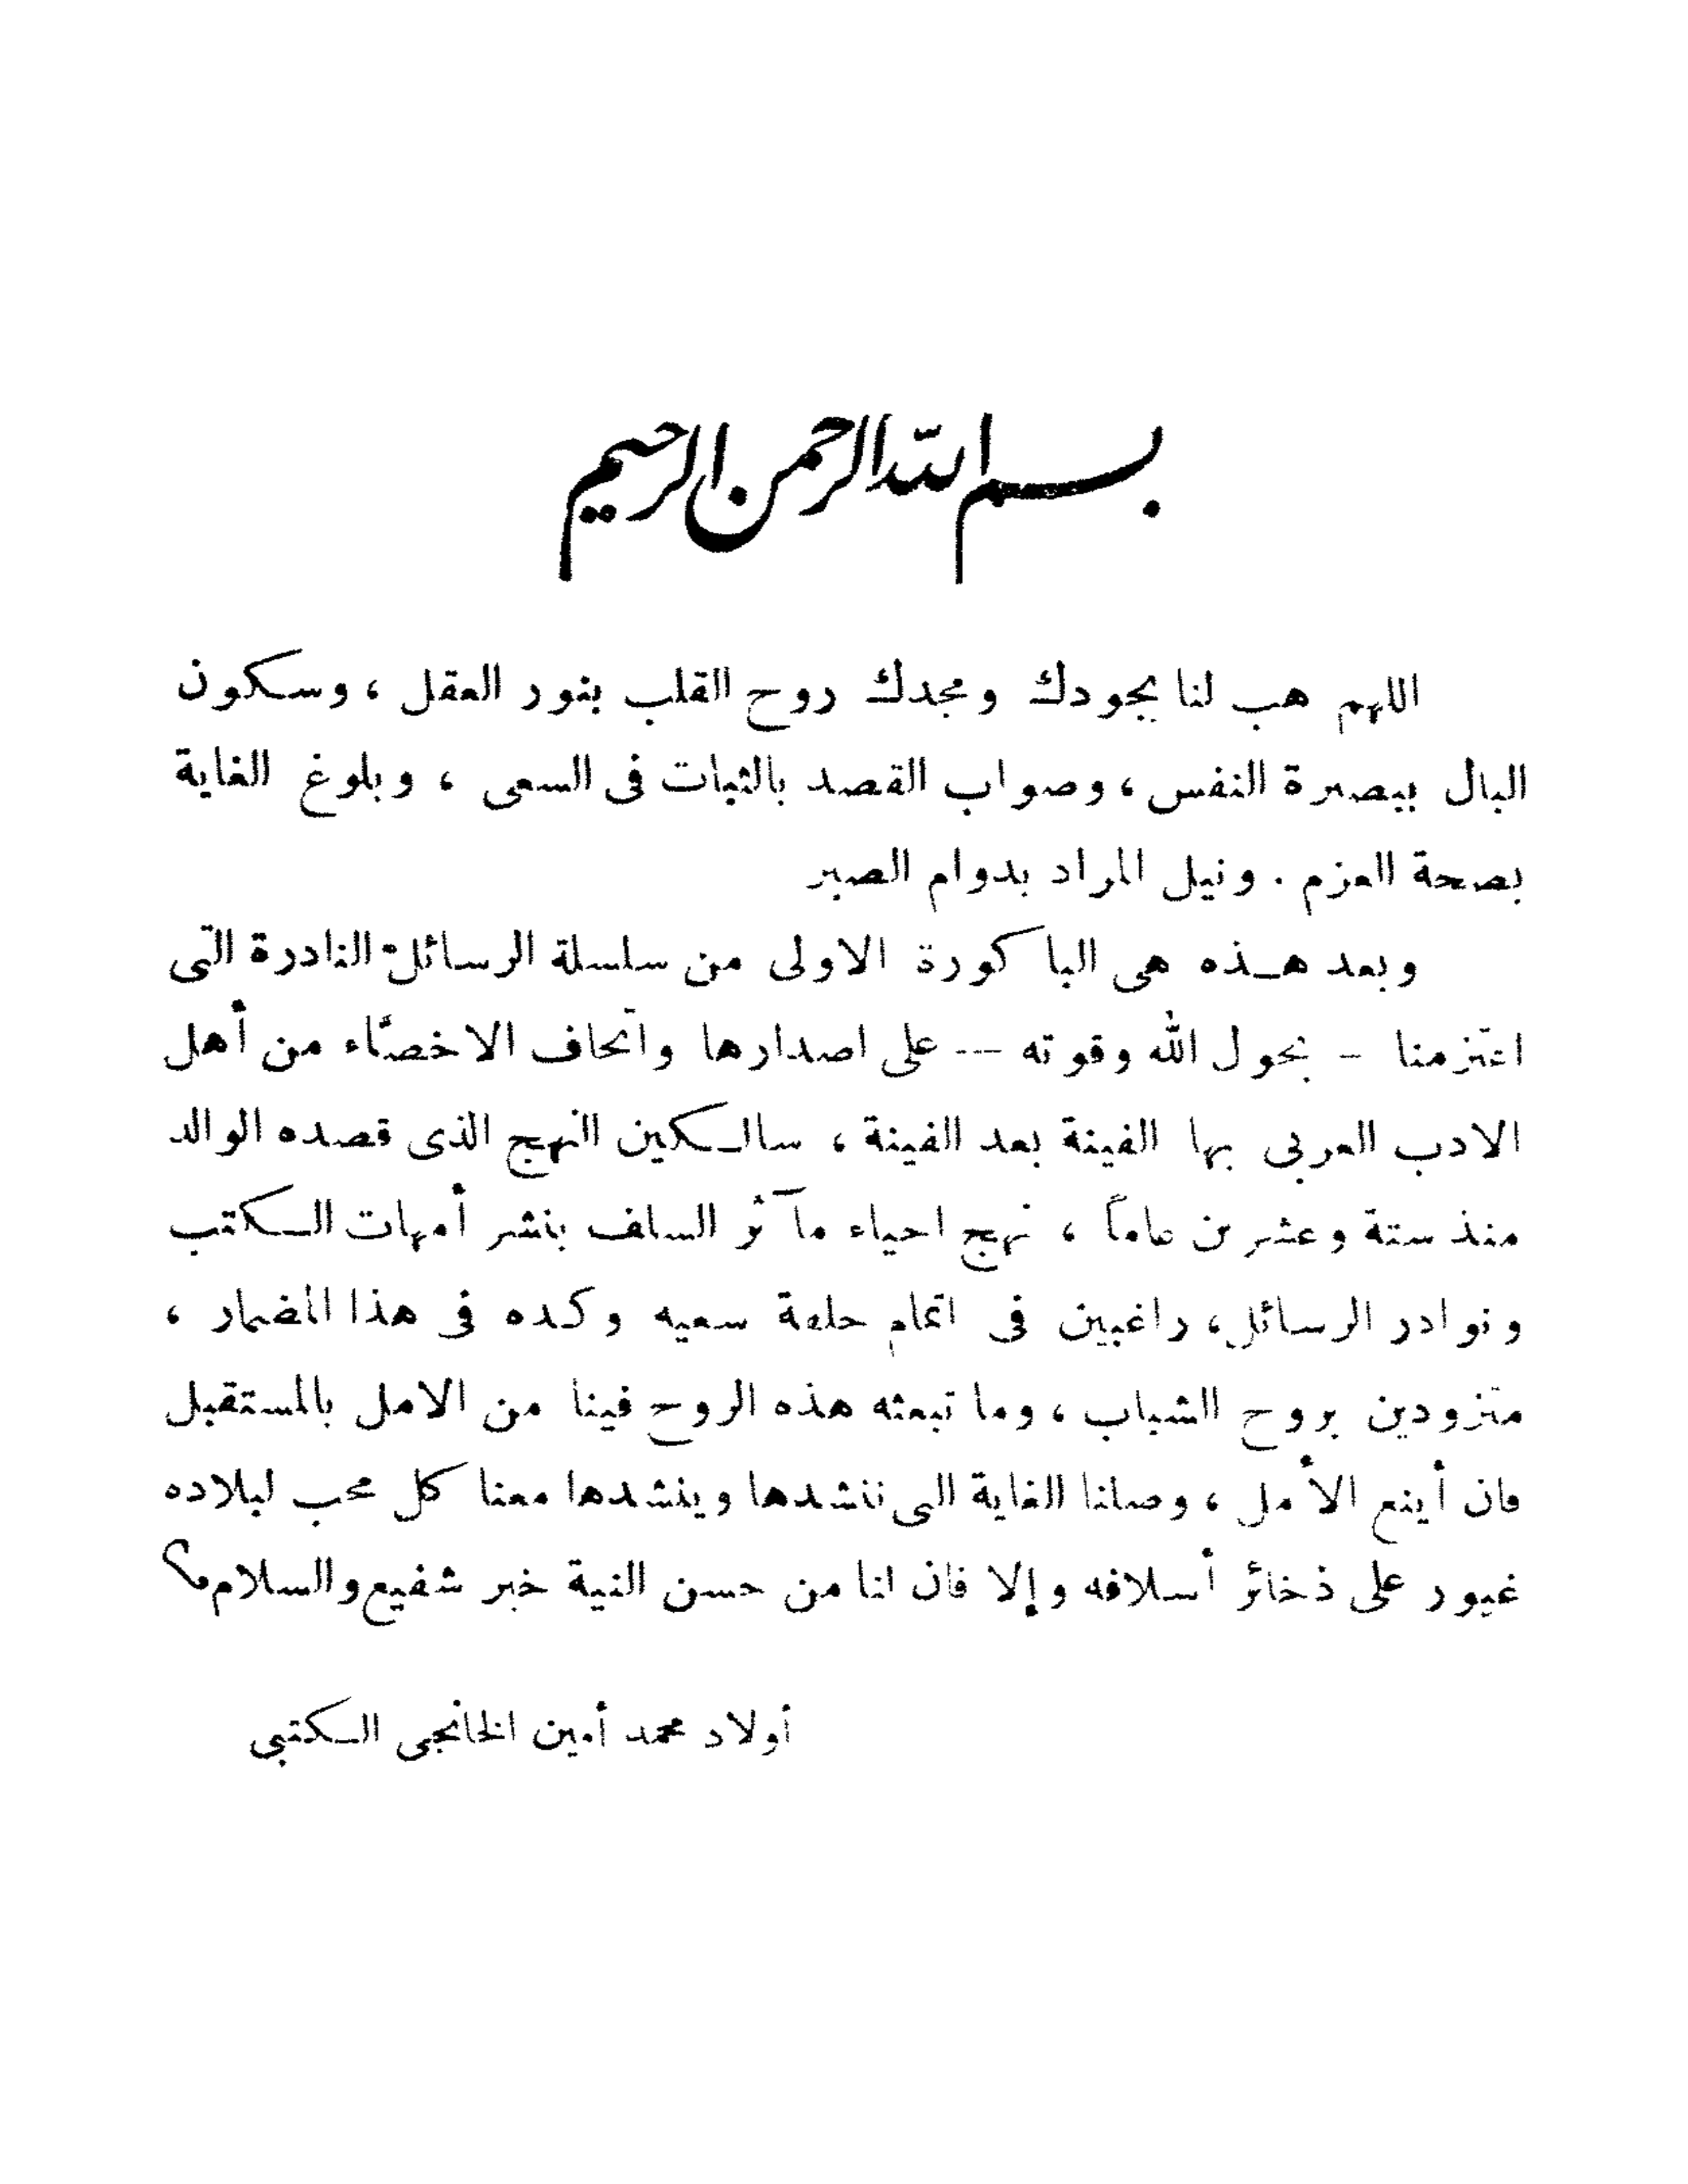 بسم الله الرحمن الرحيم
اللهم هب لنا بجودك ومجدك روح القلب بنور العقل ، وسكون
البال ببصيرة النفس ، وصواب القصد بالثبات فى السعى ، وبلوغ الغاية
بصحة العزم . ونيل المراد بدوام الصبر
وبعد هـذه هى الباكورة الاولى من سلسلة الرسائل النادرة التى
اعتزمنا - بحول الله وقوته -- على اصدارها واتحاف الاخصاء من أهل
الادب العربى بها الفينة بعد الفينة ، سالكين النهج الذى قصده الوالد
منذ ستة وعشرين عاماً ، نهج احياء مآثر السلف بنشر أمهات الكتب
ونوادر الرسائل ، راغبين فى اتمام حلقة سعيه وكده فى هذا المضمار ،
متزودين بروح الشباب ، وما تبعثه هذه الروح فينا من الامل بالمستقبل
فان أينع الأمل ، وصلنا الغاية التى ننشدها وينشدها معنا كل محب لبلاده
غيور على ذخائر أسلافه وإلا فان لنا من حسن النية خير شفيع والسلام
أولاد محمد أمين الخانجى الكتبي